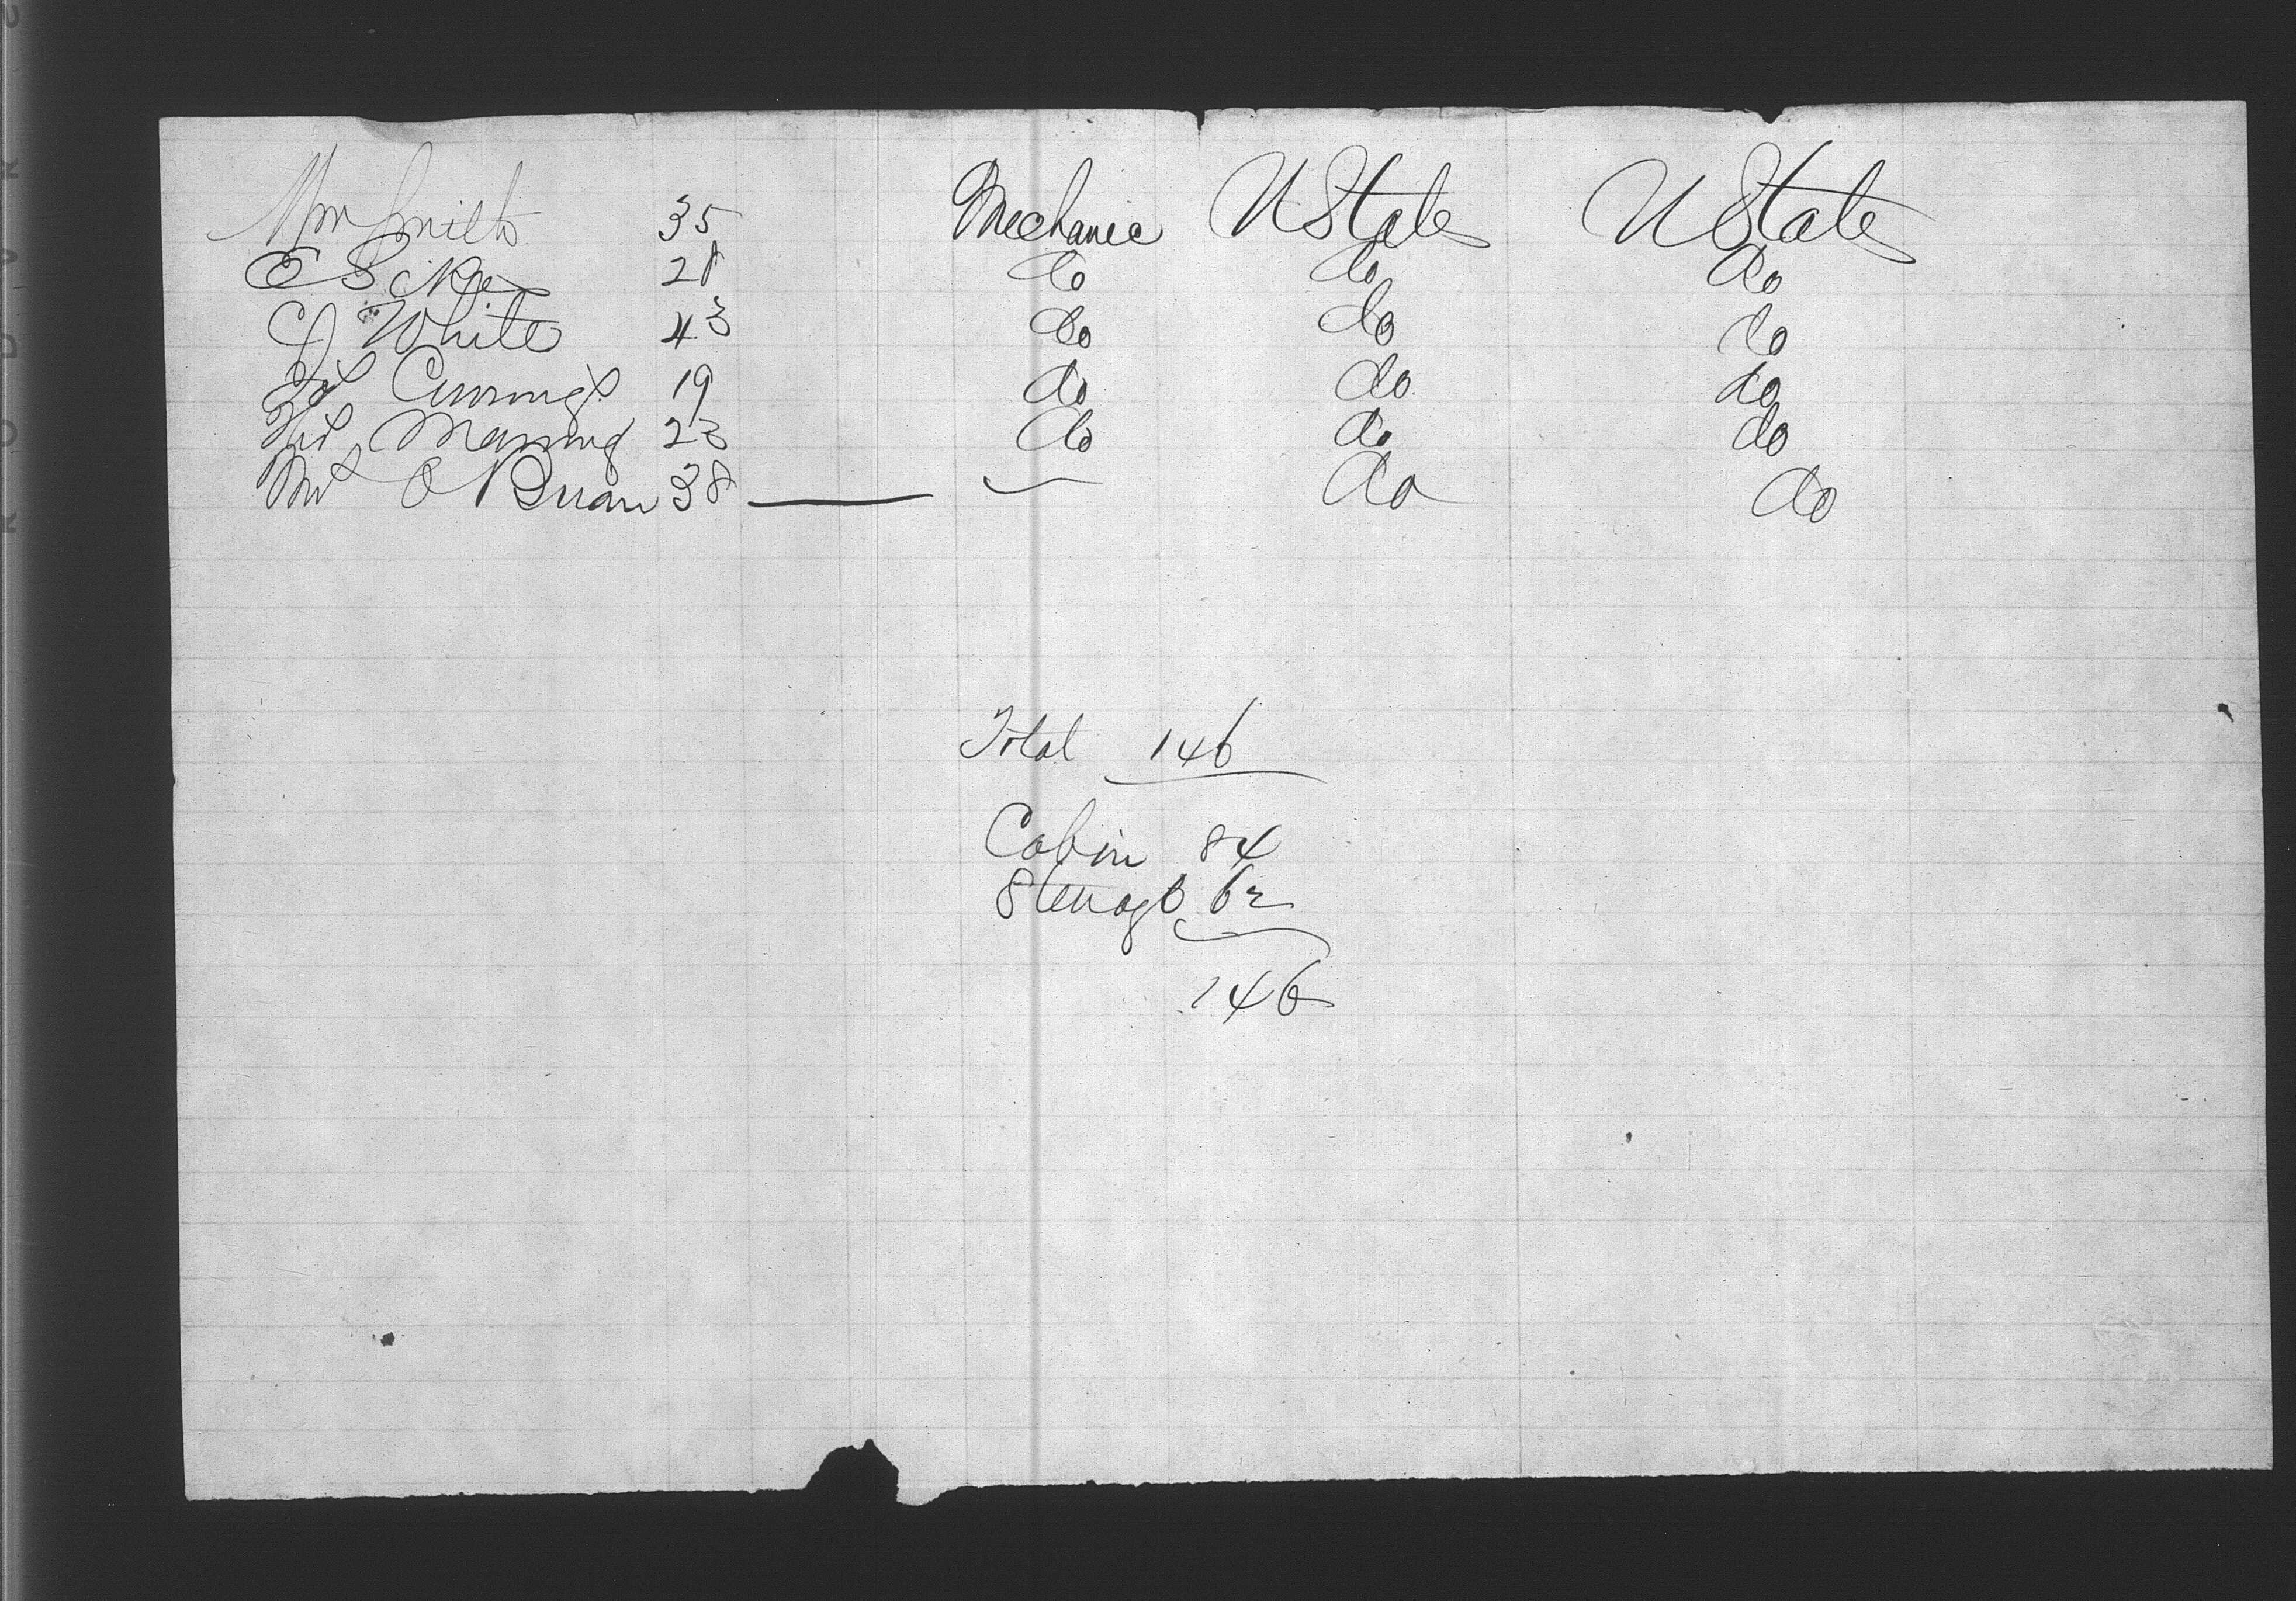 Wm Smith 35 Mechanic U State U State
28 do do do
C White 43 do do do
Cumings 19 do do do
Manning 23 do do do
O Brian 38 — do do
Total 146
Cabin 84
Sterage 62
146